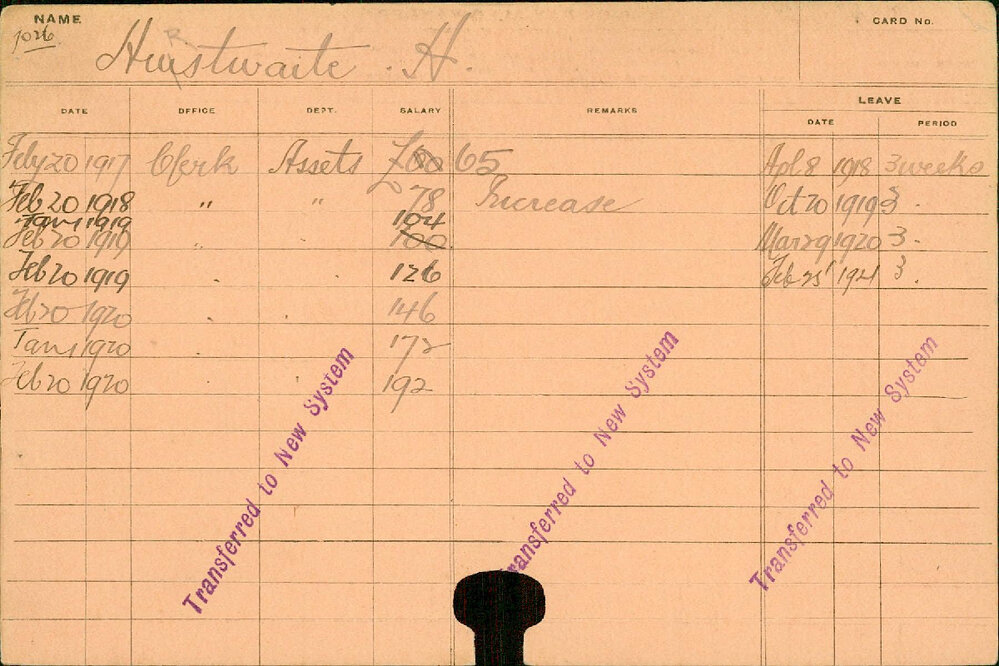 NAME
CARD No.
1026
Hurstwaite . H.
LEAVE
DATE OFFICE DEPT. SALARY REMARKS DATE PERIOD
Feby 20 1917 Clerk Assets £ 65 Apl 8 1918 3 weeks
Feb 20 1918 " " 78 Increase Oct 20 1919 3
Jany 1919 104
Feb 20 1919 " . 100 Mar 29 1920 3 .
Feb 20 1919 " . 126 Feb 25 1921 3 .
Feb 20 1920 . . 146
Jany 1920 . 172
Feb 20 1920 . . 192
Transferred to New System
Transferred to New System
Transferred to New System